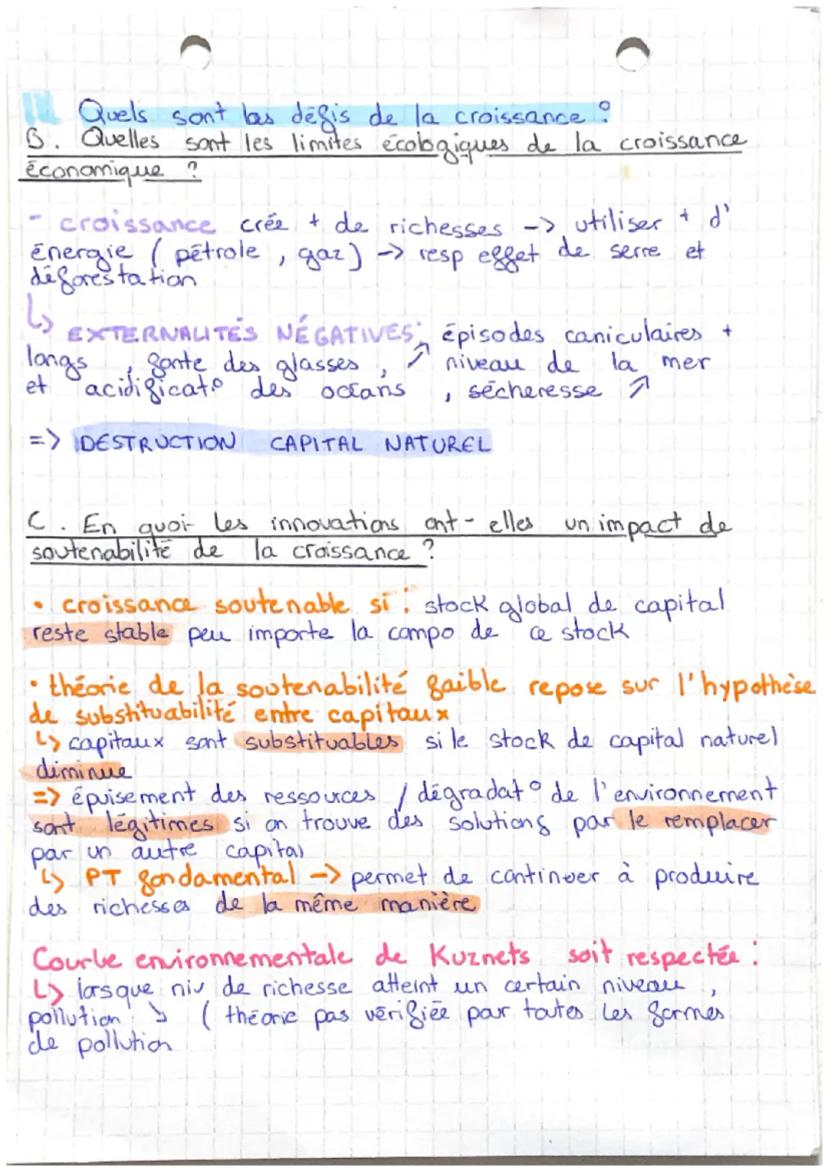 III. Quels sont les défis de la croissance ?
B. Quelles sont les limites écologiques de la croissance
économique ?
- croissance crée + de richesses -> utiliser + d'
énergie ( pétrole , gaz ) -> resp effet de serre et
déforestation
↳ EXTERNALITÉS NÉGATIVES : épisodes caniculaires +
longs , fonte des glasses , ↗ niveau de la mer
et acidificat° des océans , sécheresse ↗
=> DESTRUCTION CAPITAL NATUREL
C. En quoi les innovations ont-elles un impact de
soutenabilité de la croissance ?
• croissance soutenable si : stock global de capital
reste stable peu importe la compo de ce stock
• théorie de la soutenabilité faible repose sur l'hypothèse
de substituabilité entre capitaux
↳ capitaux sont substituables si le stock de capital naturel
diminue
=> épuisement des ressources / dégradat° de l'environnement
sont légitimes si on trouve des solutions pour le remplacer
par un autre capital
↳ PT fondamental -> permet de continuer à produire
des richesses de la même manière
Courbe environnementale de Kuznets soit respectée :
↳ lorsque niv de richesse atteint un certain niveau ,
pollution ↘ ( théorie pas vérifiée pour toutes les formes
de pollution